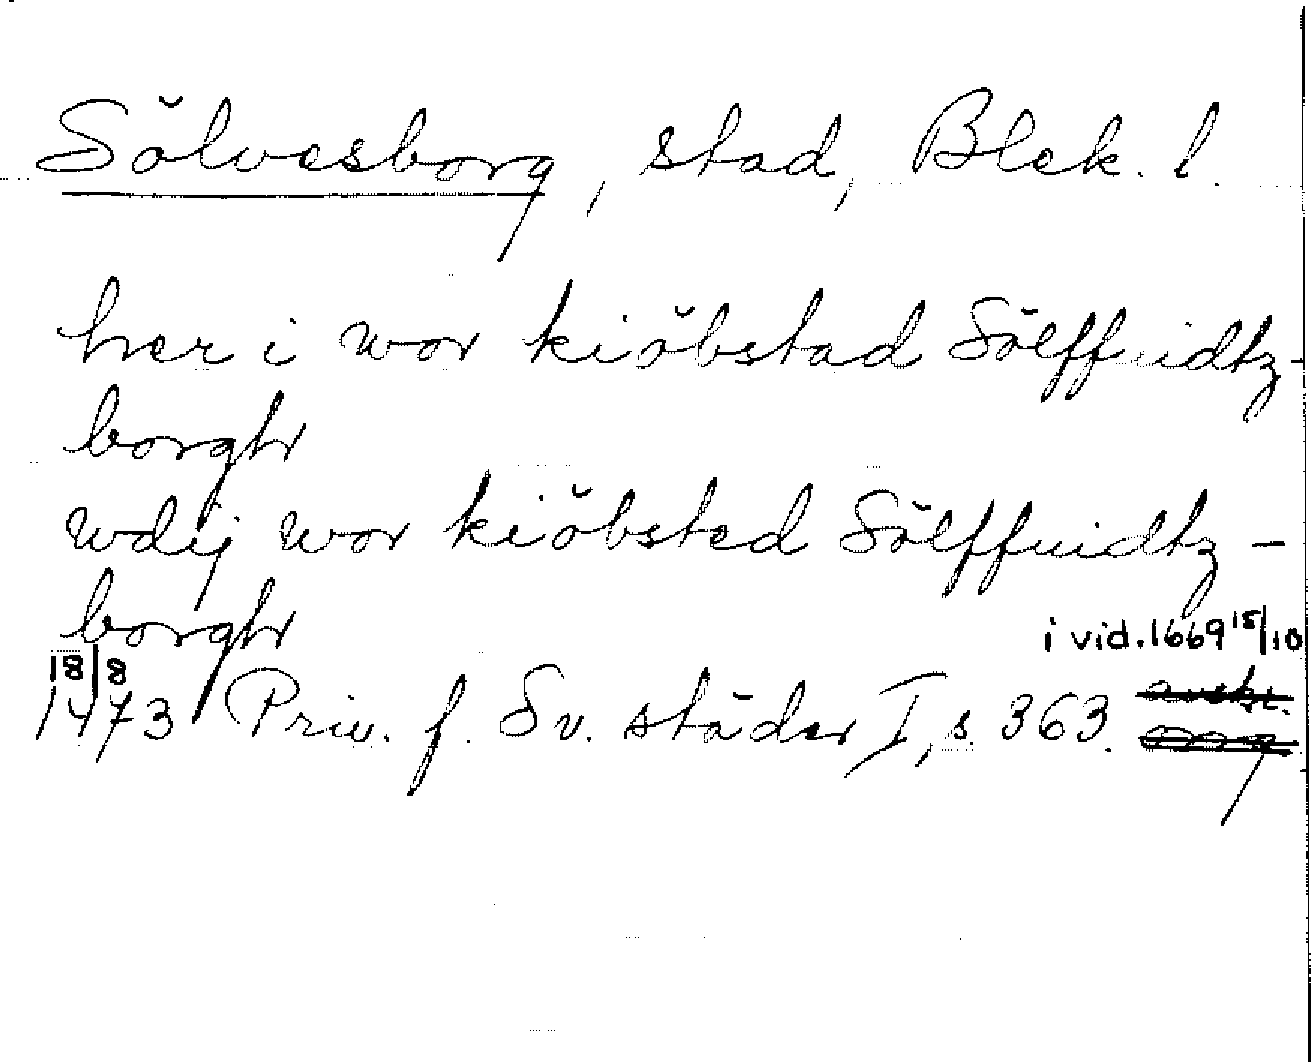 Sölvesborg, stad, Blek. l.
her i wor kiöbstad Sölffuidtz-
borgh
wdij wor kiöbsted Sölffuidtz-
borgh
i vid. 1669 15/10
18/8
1473 Priv. f. Sv. städer I, s. 363.